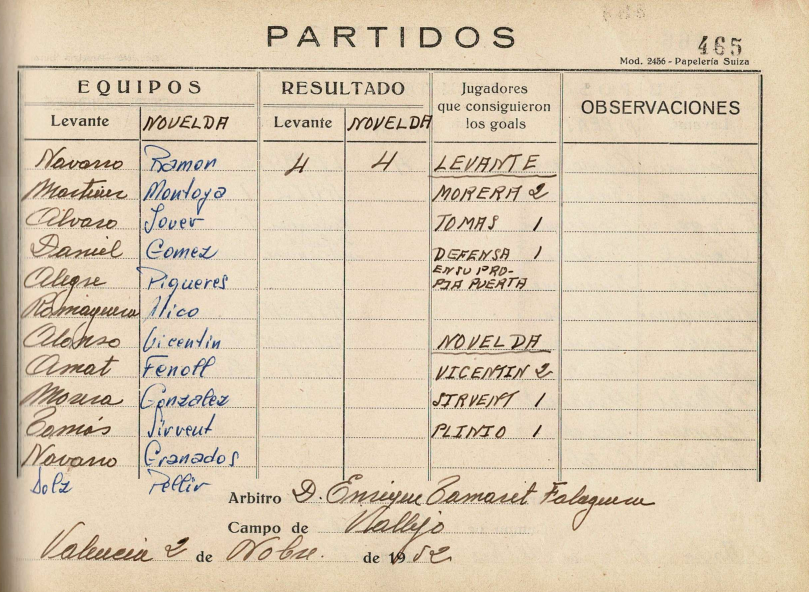 PARTIDOS
465
Mod. 2456 - Papelería Suiza
EQUIPOS RESULTADO Jugadores que consiguieron los goals OBSERVACIONES
Levante NOVELDA Levante NOVELDA
Navarro Ramon 4 4 LEVANTE
Martinez Montoya MORERA 2
Alvaro Jover TOMAS 1
Daniel Gomez DEFENSA 1
EN SU PRO-
Alegre Piqueres PIA PUERTA
Ramaguera Mico
Alonso Vicentin NOVELDA
Amat Fenoll VICENTIN 2
Morera Gonzalez SIRVENT 1
Tomás Sirvent PLINIO 1
Navarro Granados
Dolz Pellir
Arbitro D. Enrique Tamaret Falaguera
Campo de Vallejo
Valencia 2 de Nobre. de 1952